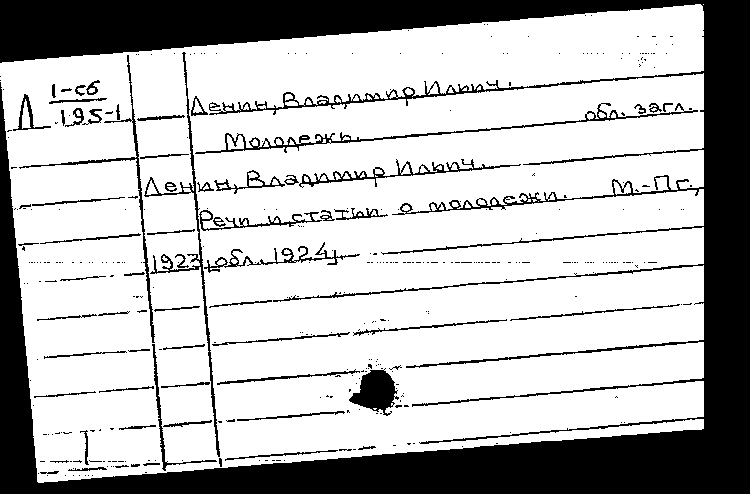 Л 1-сб
195-1
Ленин, Владимир Ильич.
Молодежь. обл. загл.
Ленин, Владимир Ильич.
Речи и статьи о молодежи. М.-Пг.,
1923, [обл. 1924].